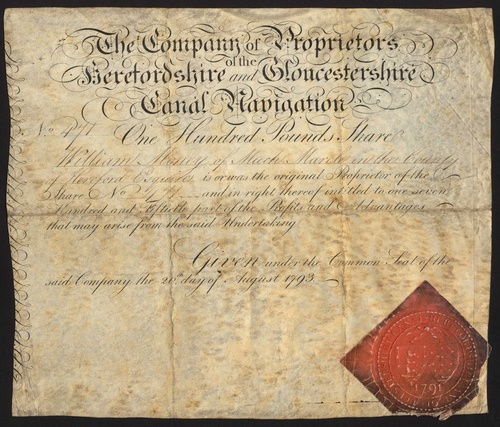 The Company of Proprietors
of the
Herefordshire and Gloucestershire
Canal Navigation
No. 471
One Hundred Pounds Share
William Money of Much Marcle in the County
of Hereford Esquire is or was the original Proprietor of the
Share No. 471 and in right thereof intitled to one seven
Hundred and Fiftieth part of the Profits and Advantages
that may arise from the said Undertaking
Given under the Common Seal of the
said Company the 26th day of August 1793
1791